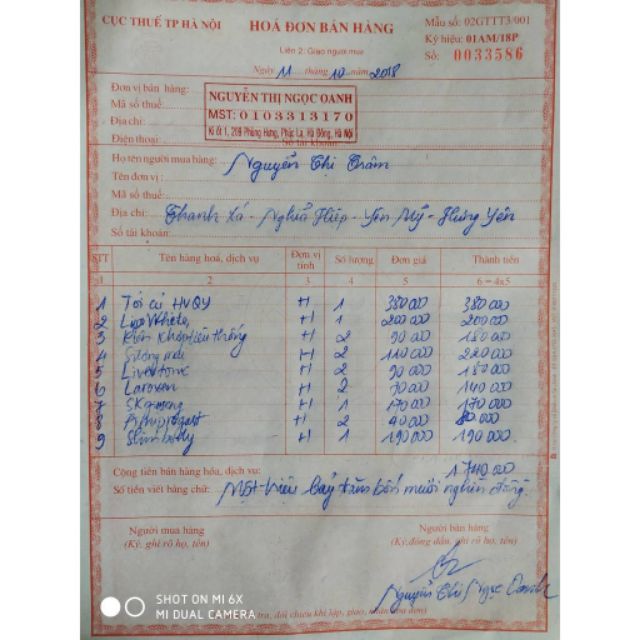 CỤC THUẾ TP HÀ NỘI
HOÁ ĐƠN BÁN HÀNG
Liên 2: Giao người mua
Ngày 11 tháng 10 năm 2018
Mẫu số: 02GTTT3/001
Ký hiệu: 01AM/18P
Số: 0033586
Đơn vị bán hàng:
NGUYỄN THỊ NGỌC OANH
Mã số thuế:
MST: 0103313170
Địa chỉ:
Ki ốt 1, 209 Phùng Hưng, Phúc La, Hà Đông, Hà Nội
Điện thoại: Số tài khoản:
Họ tên người mua hàng: Nguyễn Thị Trâm
Tên đơn vị:
Mã số thuế:
Địa chỉ: Thanh Xá - Nghĩa Hiệp - Yên Mỹ - Hưng Yên
Số tài khoản:
STT Tên hàng hoá, dịch vụ Đơn vị tính Số lượng Đơn giá Thành tiền
1 2 3 4 5 6 = 4x5
1 Tỏi cô HVQY H 1 380 000 380 000
2 H 1 200 000 200 000
3 H 2 90 000 180 000
4 H 2 110 000 220 000
5 H 2 90 000 180 000
6 Laroxen H 2 70 000 140 000
7 H 1 170 000 170 000
8 H 2 40 000 80 000
9 Slimbody H 1 190 000 190 000
Cộng tiền bán hàng hóa, dịch vụ: 1 740 000
Số tiền viết bằng chữ: Một triệu bảy trăm bốn mười nghìn đồng.
Người mua hàng
(Ký, ghi rõ họ, tên)
Người bán hàng
(Ký, đóng dấu, ghi rõ họ, tên)
Nguyễn Thị Ngọc Oanh
SHOT ON MI 6X
MI DUAL CAMERA
tra, đối chiếu khi lập, giao, nhận hóa đơn)